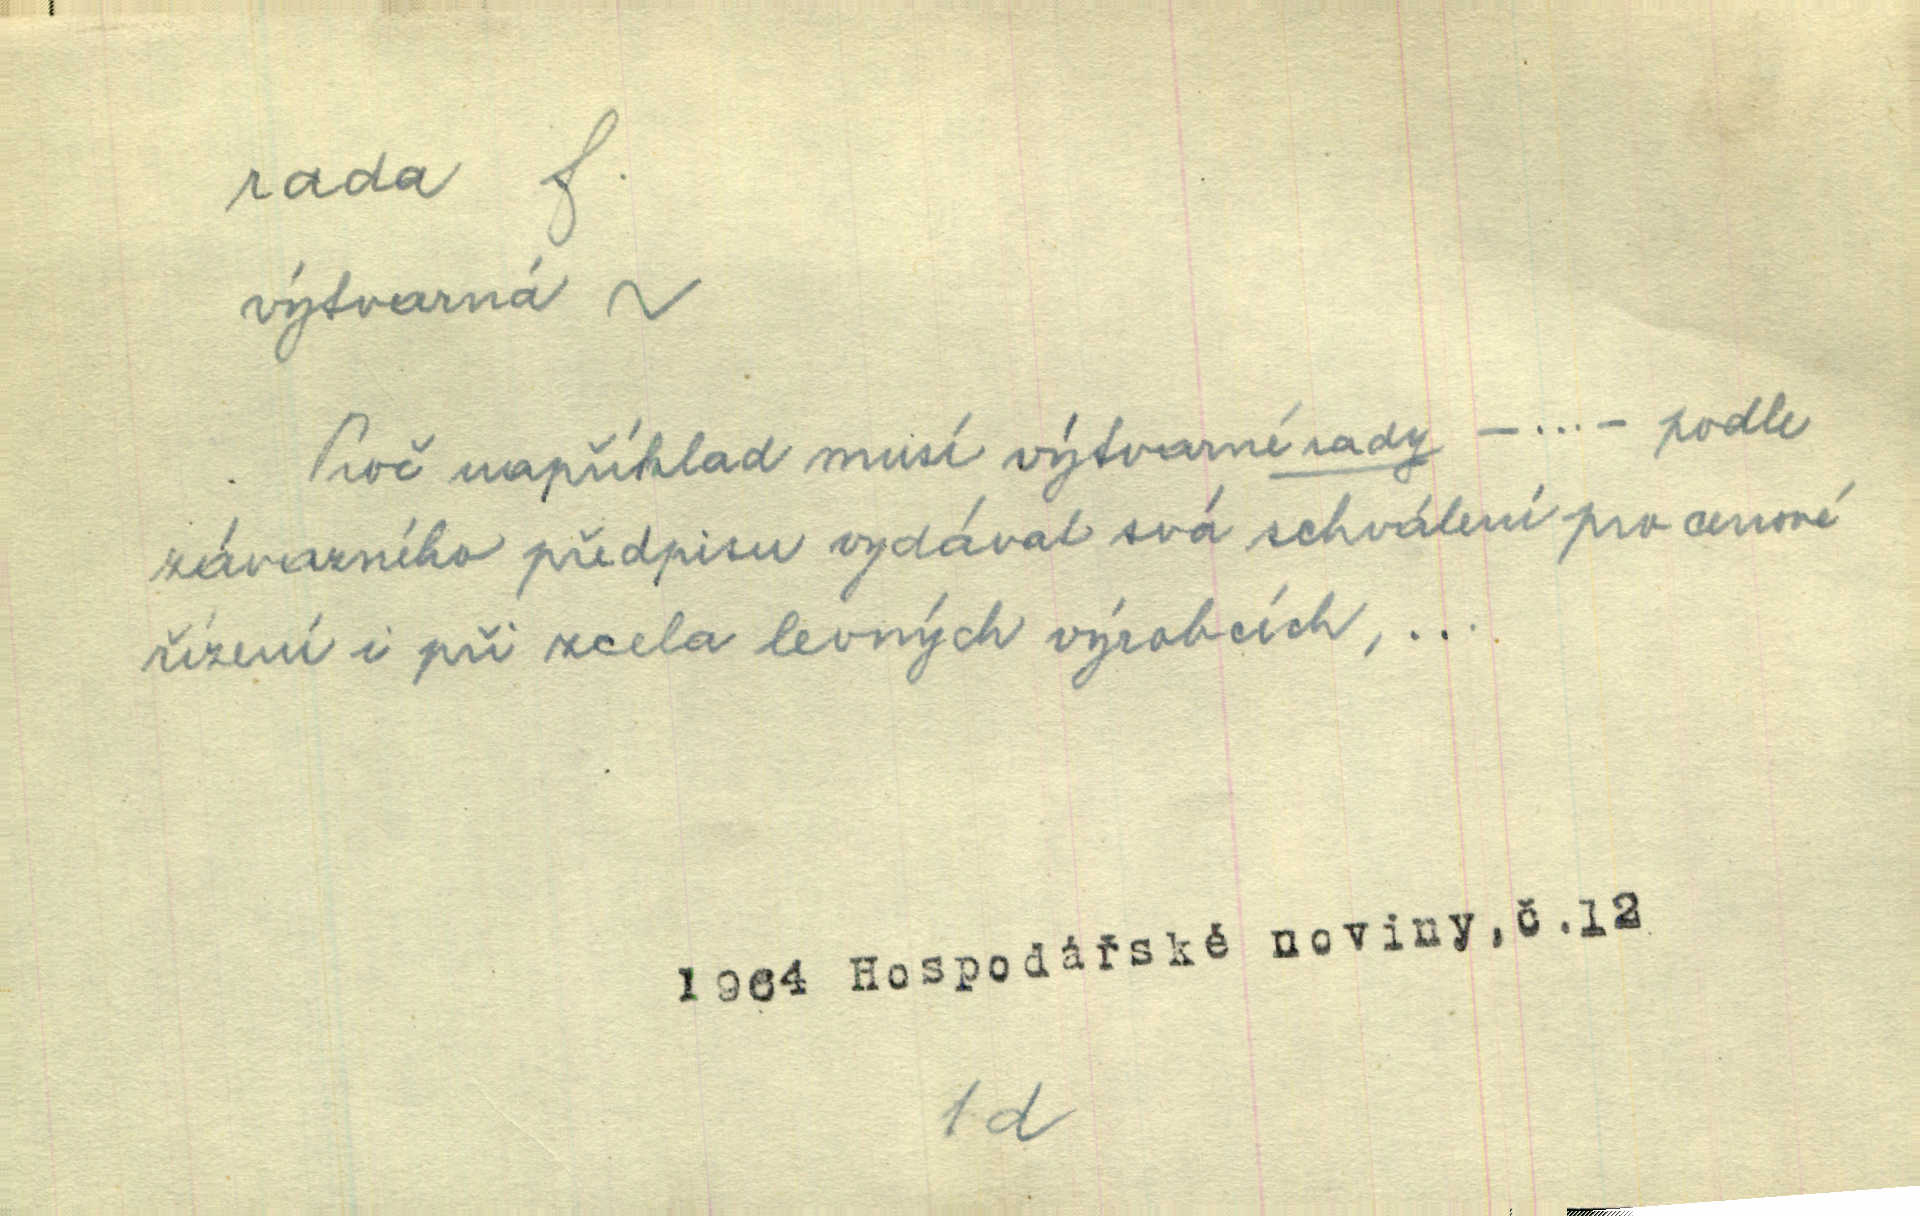 rada f.
výtvarná ~
Proč například musí výtvarné rady -...- podle
závazného předpisu vydávat svá schválení pro cenové
řízení i při zcela levných výrobcích, ...
1964 Hospodářské noviny,č.12
1d